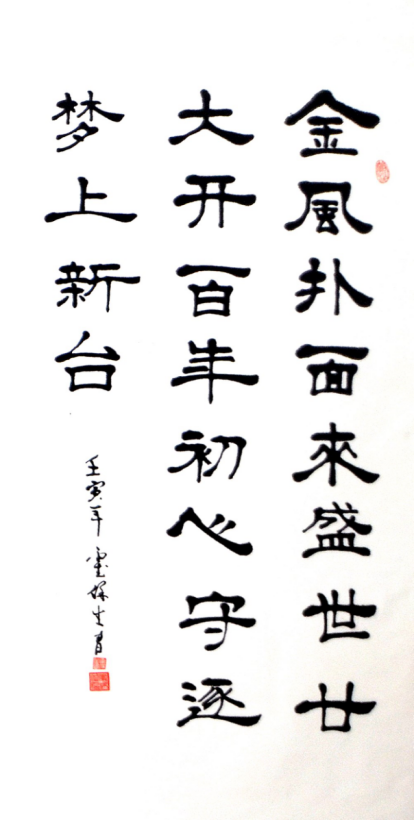 金風扑面來盛世廿
大开百年初心守逐
梦上新台
壬寅年